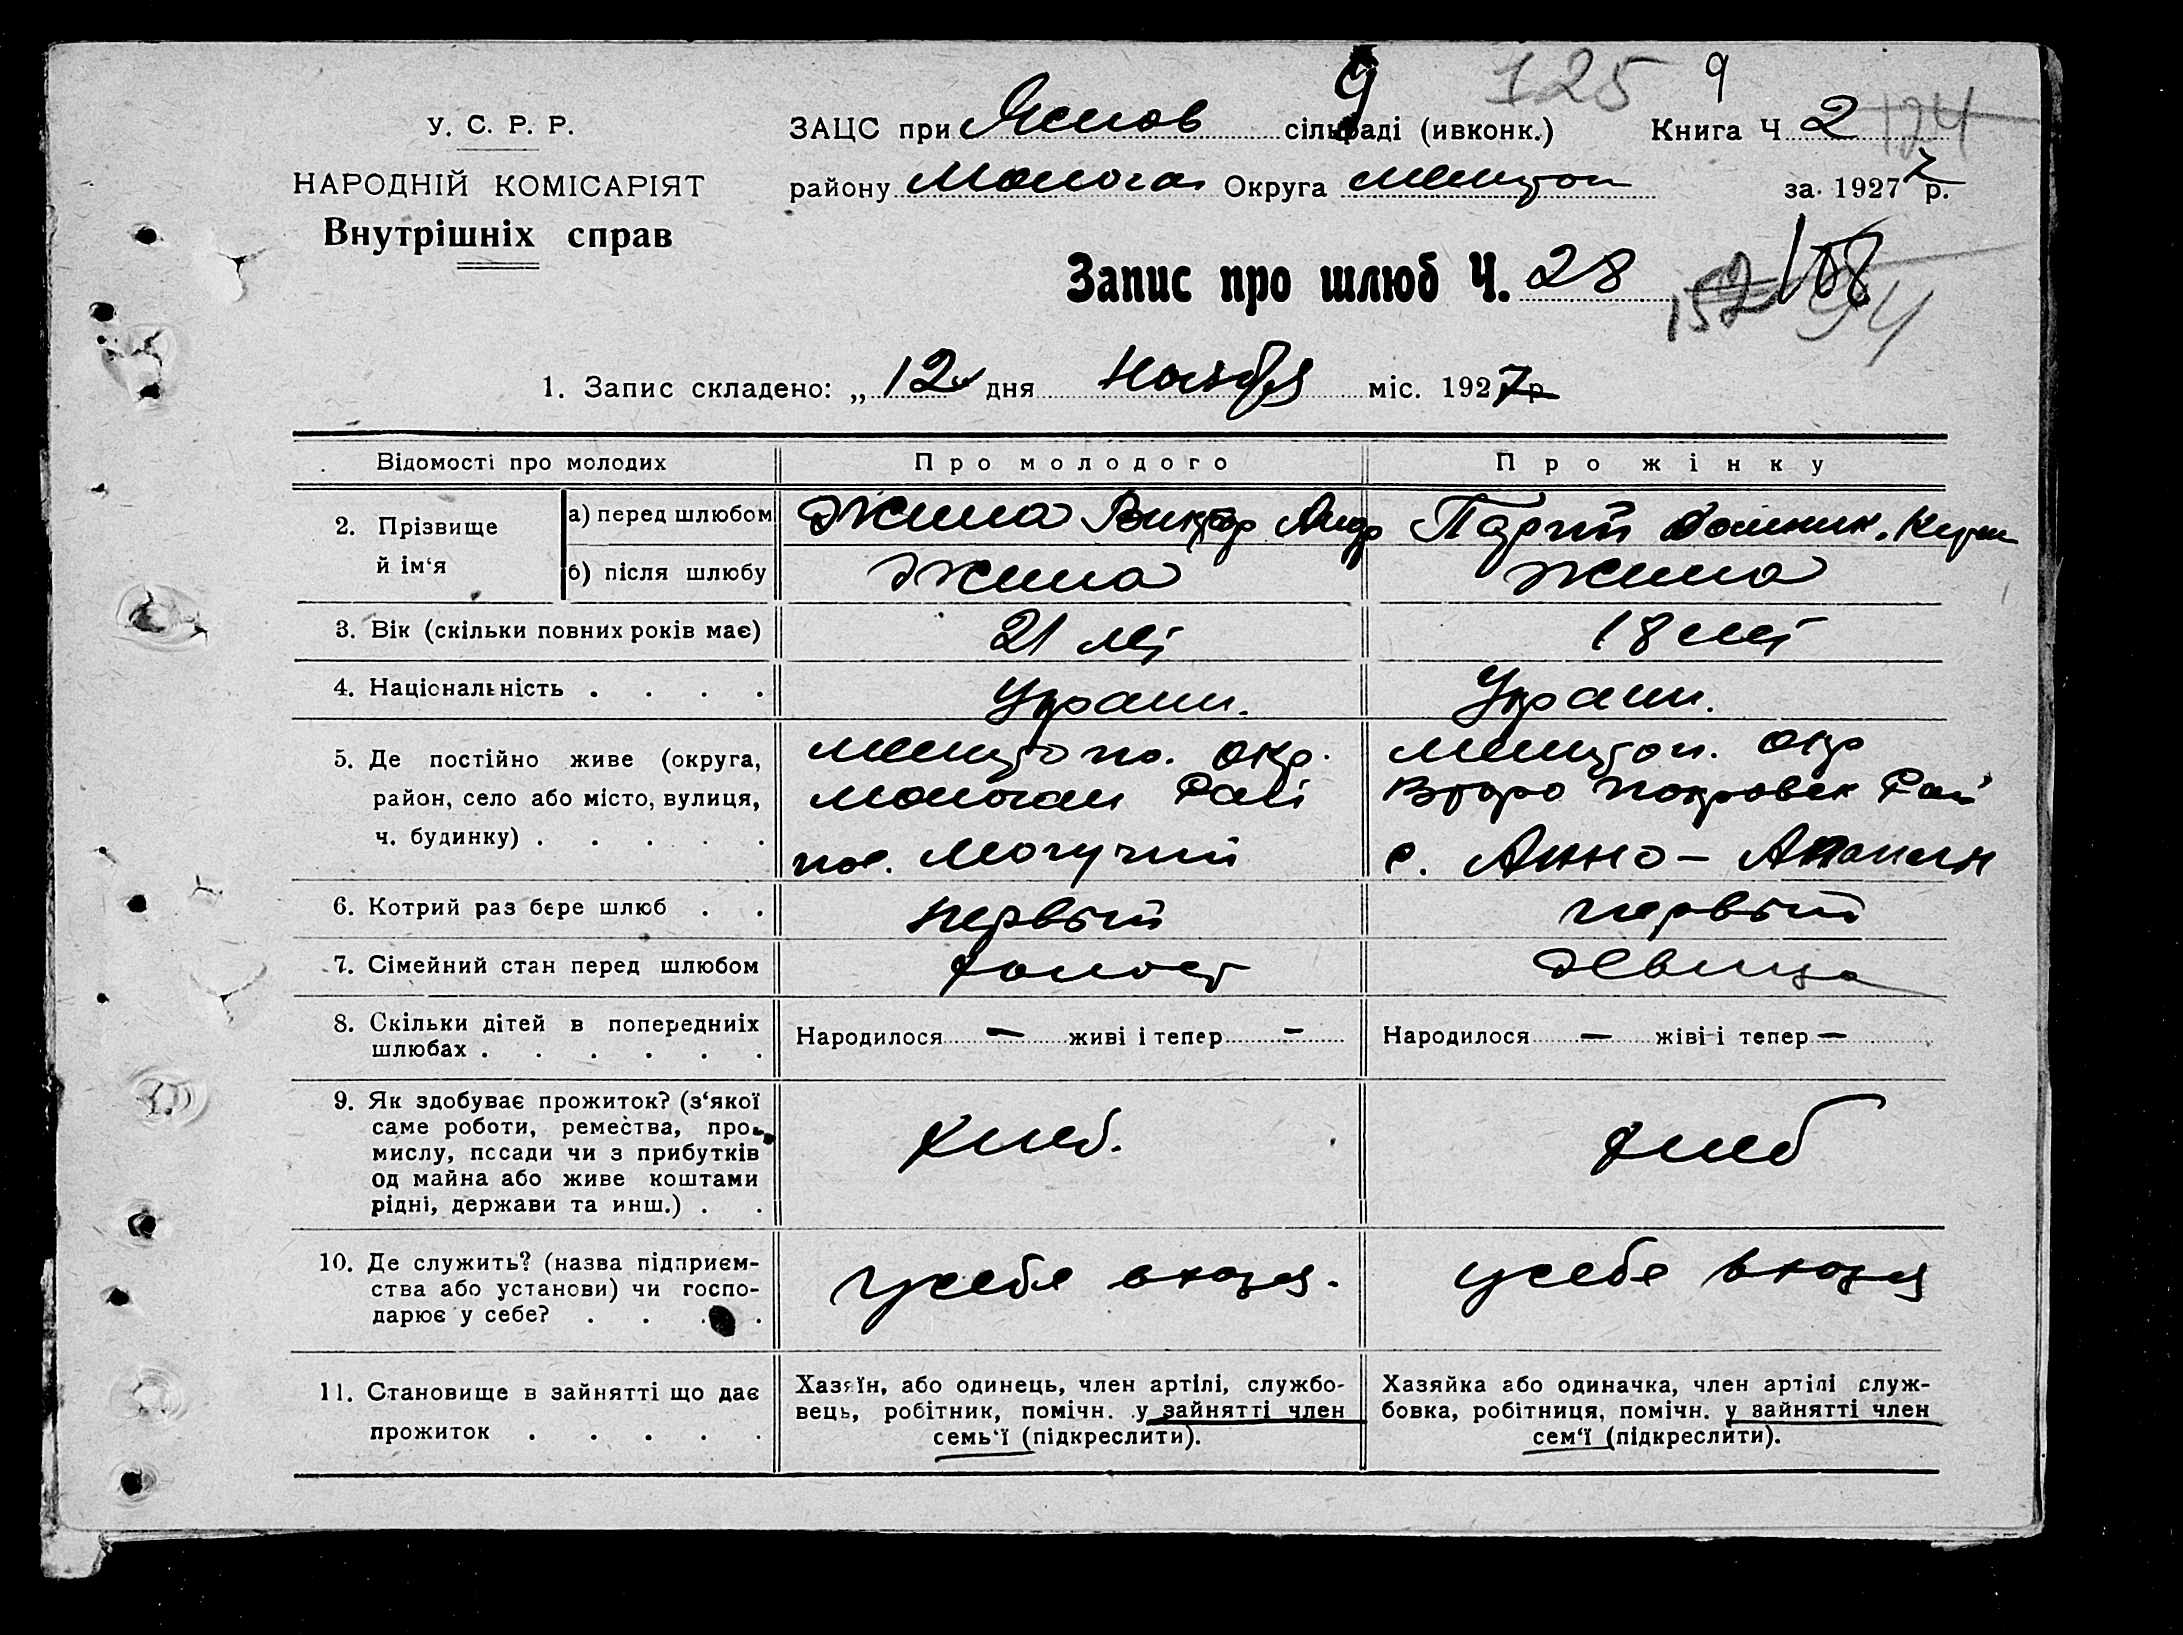 9 125 9
У. С. Р. Р.
ЗАЦС при сільраді (ивконк.) Книга Ч 2 124
НАРОДНІЙ КОМІСАРІЯТ
району Округа за 1927 7 р.
Внутрішніх справ
Запис про шлюб Ч. 28 152 108 94
1. Запис складено: „ 12 дня Ноября міс. 1927 р
Відомості про молодих Про молодого Про жінку
2. Прізвище й ім‘я
а) перед шлюбом Виктор Андр
б) після шлюбу
3. Вік (скільки повних років має) 21 лет 18 лет
4. Національність . . . . Украин. Украин.
5. Де постійно живе (округа, район, село або місто, вулиця, ч. будинку) . . . . .
Мелитоп. Окр.
Молочан Рай
пос. Могучий
Мелитоп. Окр
Второ Покровск Рай
с. Анно-
6. Котрий раз бере шлюб . . первый первый
7. Сімейний стан перед шлюбом холост девица
8. Скільки дітей в попередниіх шлюбах . . . . . .
Народилося — живі і тепер —
Народилося — жіві і тепер —
9. Як здобуває прожиток? (з‘якої
саме роботи, ремества, про-
мислу, посади чи з прибутків
од майна або живе коштами
рідні, держави та инш.) . .
хлеб.
хлеб
10. Де служить? (назва підприєм-
ства або установи) чи госпо-
дарює у себе? . . . .
у себе в хозя.
у себе в хозя
11. Становище в зайнятті що дає
прожиток . . . . .
Хазяїн, або одинець, член артілі, службо-
вець, робітник, помічн. у зайнятті член
семь‘ї (підкреслити).
Хазяйка або одиначка, член артілі служ-
бовка, робітниця, помічн. у зайнятті член
сем‘ї (підкреслити).